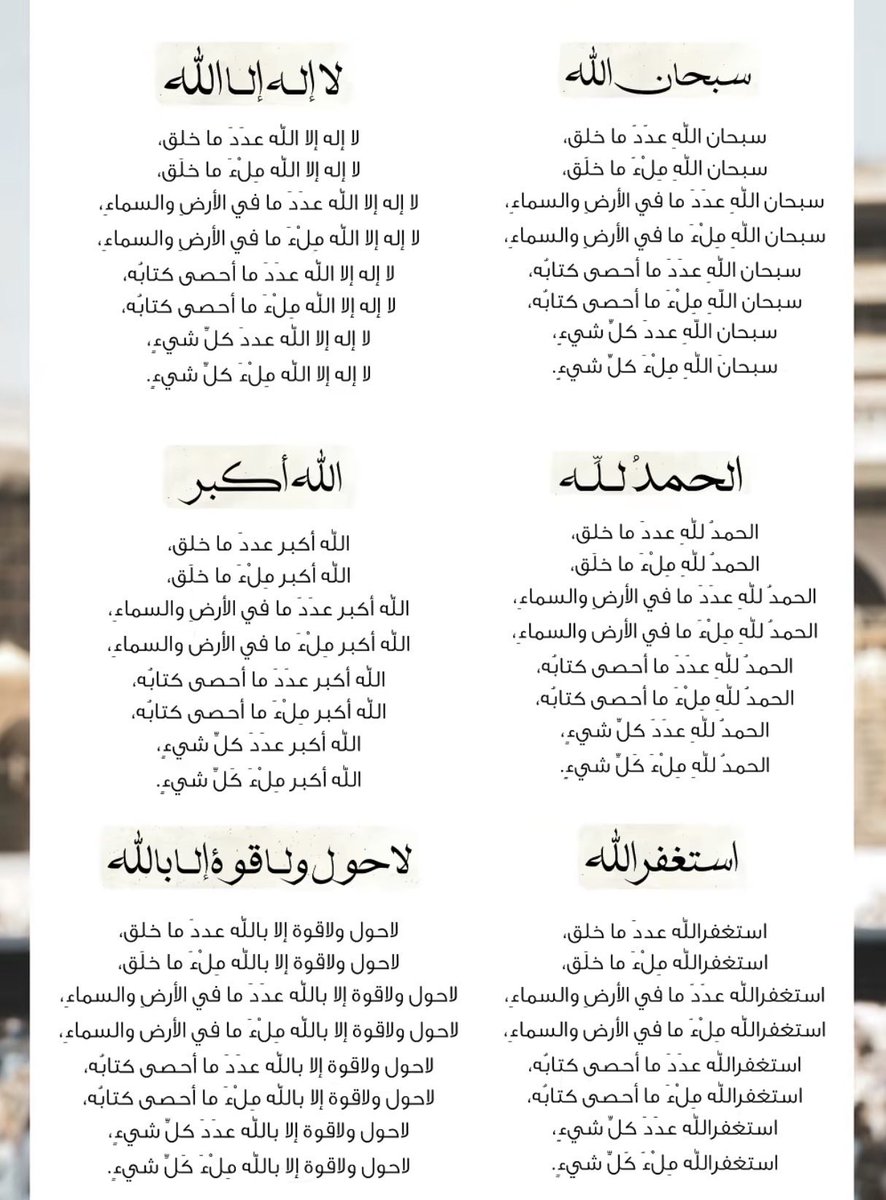 سبحان الله
سبحان اللهِ عدَدَ ما خلق،
سبحان اللهِ مِلْءَ ما خلَق،
سبحان اللهِ عدَدَ ما في الأرضِ والسماءِ،
سبحان اللهِ مِلْءَ ما في الأرضِ والسماءِ،
سبحان اللهِ عدَدَ ما أحصى كتابُه،
سبحان اللهِ مِلْءَ ما أحصى كتابُه،
سبحان اللهِ عددَ كلِّ شيءٍ،
سبحانَ اللهِ مِلْءَ كلِّ شيءٍ.
لا إله إلا الله
لا إله إلا الله عدَدَ ما خلق،
لا إله إلا الله مِلْءَ ما خلَق،
لا إله إلا الله عدَدَ ما في الأرضِ والسماءِ،
لا إله إلا الله مِلْءَ ما في الأرضِ والسماءِ،
لا إله إلا الله عدَدَ ما أحصى كتابُه،
لا إله إلا الله مِلْءَ ما أحصى كتابُه،
لا إله إلا الله عددَ كلِّ شيءٍ،
لا إله إلا الله مِلْءَ كلِّ شيءٍ.
الحمدُ لله
الحمدُ للهِ عددَ ما خلق،
الحمدُ للهِ مِلْءَ ما خلَق،
الحمدُ للهِ عدَدَ ما في الأرضِ والسماءِ،
الحمدُ للهِ مِلْءَ ما في الأرضِ والسماءِ،
الحمدُ للهِ عدَدَ ما أحصى كتابُه،
الحمدُ للهِ مِلْءَ ما أحصى كتابُه،
الحمدُ للهِ عدَدَ كلِّ شيءٍ،
الحمدُ للهِ مِلْءَ كَلِّ شيءٍ.
الله أكبر
الله أكبر عددَ ما خلق،
الله أكبر مِلْءَ ما خلَق،
الله أكبر عدَدَ ما في الأرضِ والسماءِ،
الله أكبر مِلْءَ ما في الأرضِ والسماءِ،
الله أكبر عدَدَ ما أحصى كتابُه،
الله أكبر مِلْءَ ما أحصى كتابُه،
الله أكبر عدَدَ كلِّ شيءٍ،
الله أكبر مِلْءَ كَلِّ شيءٍ.
استغفرالله
استغفرالله عددَ ما خلق،
استغفرالله مِلْءَ ما خلَق،
استغفرالله عدَدَ ما في الأرضِ والسماءِ،
استغفرالله مِلْءَ ما في الأرضِ والسماءِ،
استغفرالله عدَدَ ما أحصى كتابُه،
استغفرالله مِلْءَ ما أحصى كتابُه،
استغفرالله عدَدَ كلِّ شيءٍ،
استغفرالله مِلْءَ كَلِّ شيءٍ.
لاحول ولاقوة إلا بالله
لاحول ولاقوة إلا بالله عددَ ما خلق،
لاحول ولاقوة إلا بالله مِلْءَ ما خلَق،
لاحول ولاقوة إلا بالله عدَدَ ما في الأرضِ والسماءِ،
لاحول ولاقوة إلا بالله مِلْءَ ما في الأرضِ والسماءِ،
لاحول ولاقوة إلا بالله عدَدَ ما أحصى كتابُه،
لاحول ولاقوة إلا بالله مِلْءَ ما أحصى كتابُه،
لاحول ولاقوة إلا بالله عدَدَ كلِّ شيءٍ،
لاحول ولاقوة إلا بالله مِلْءَ كَلِّ شيءٍ.